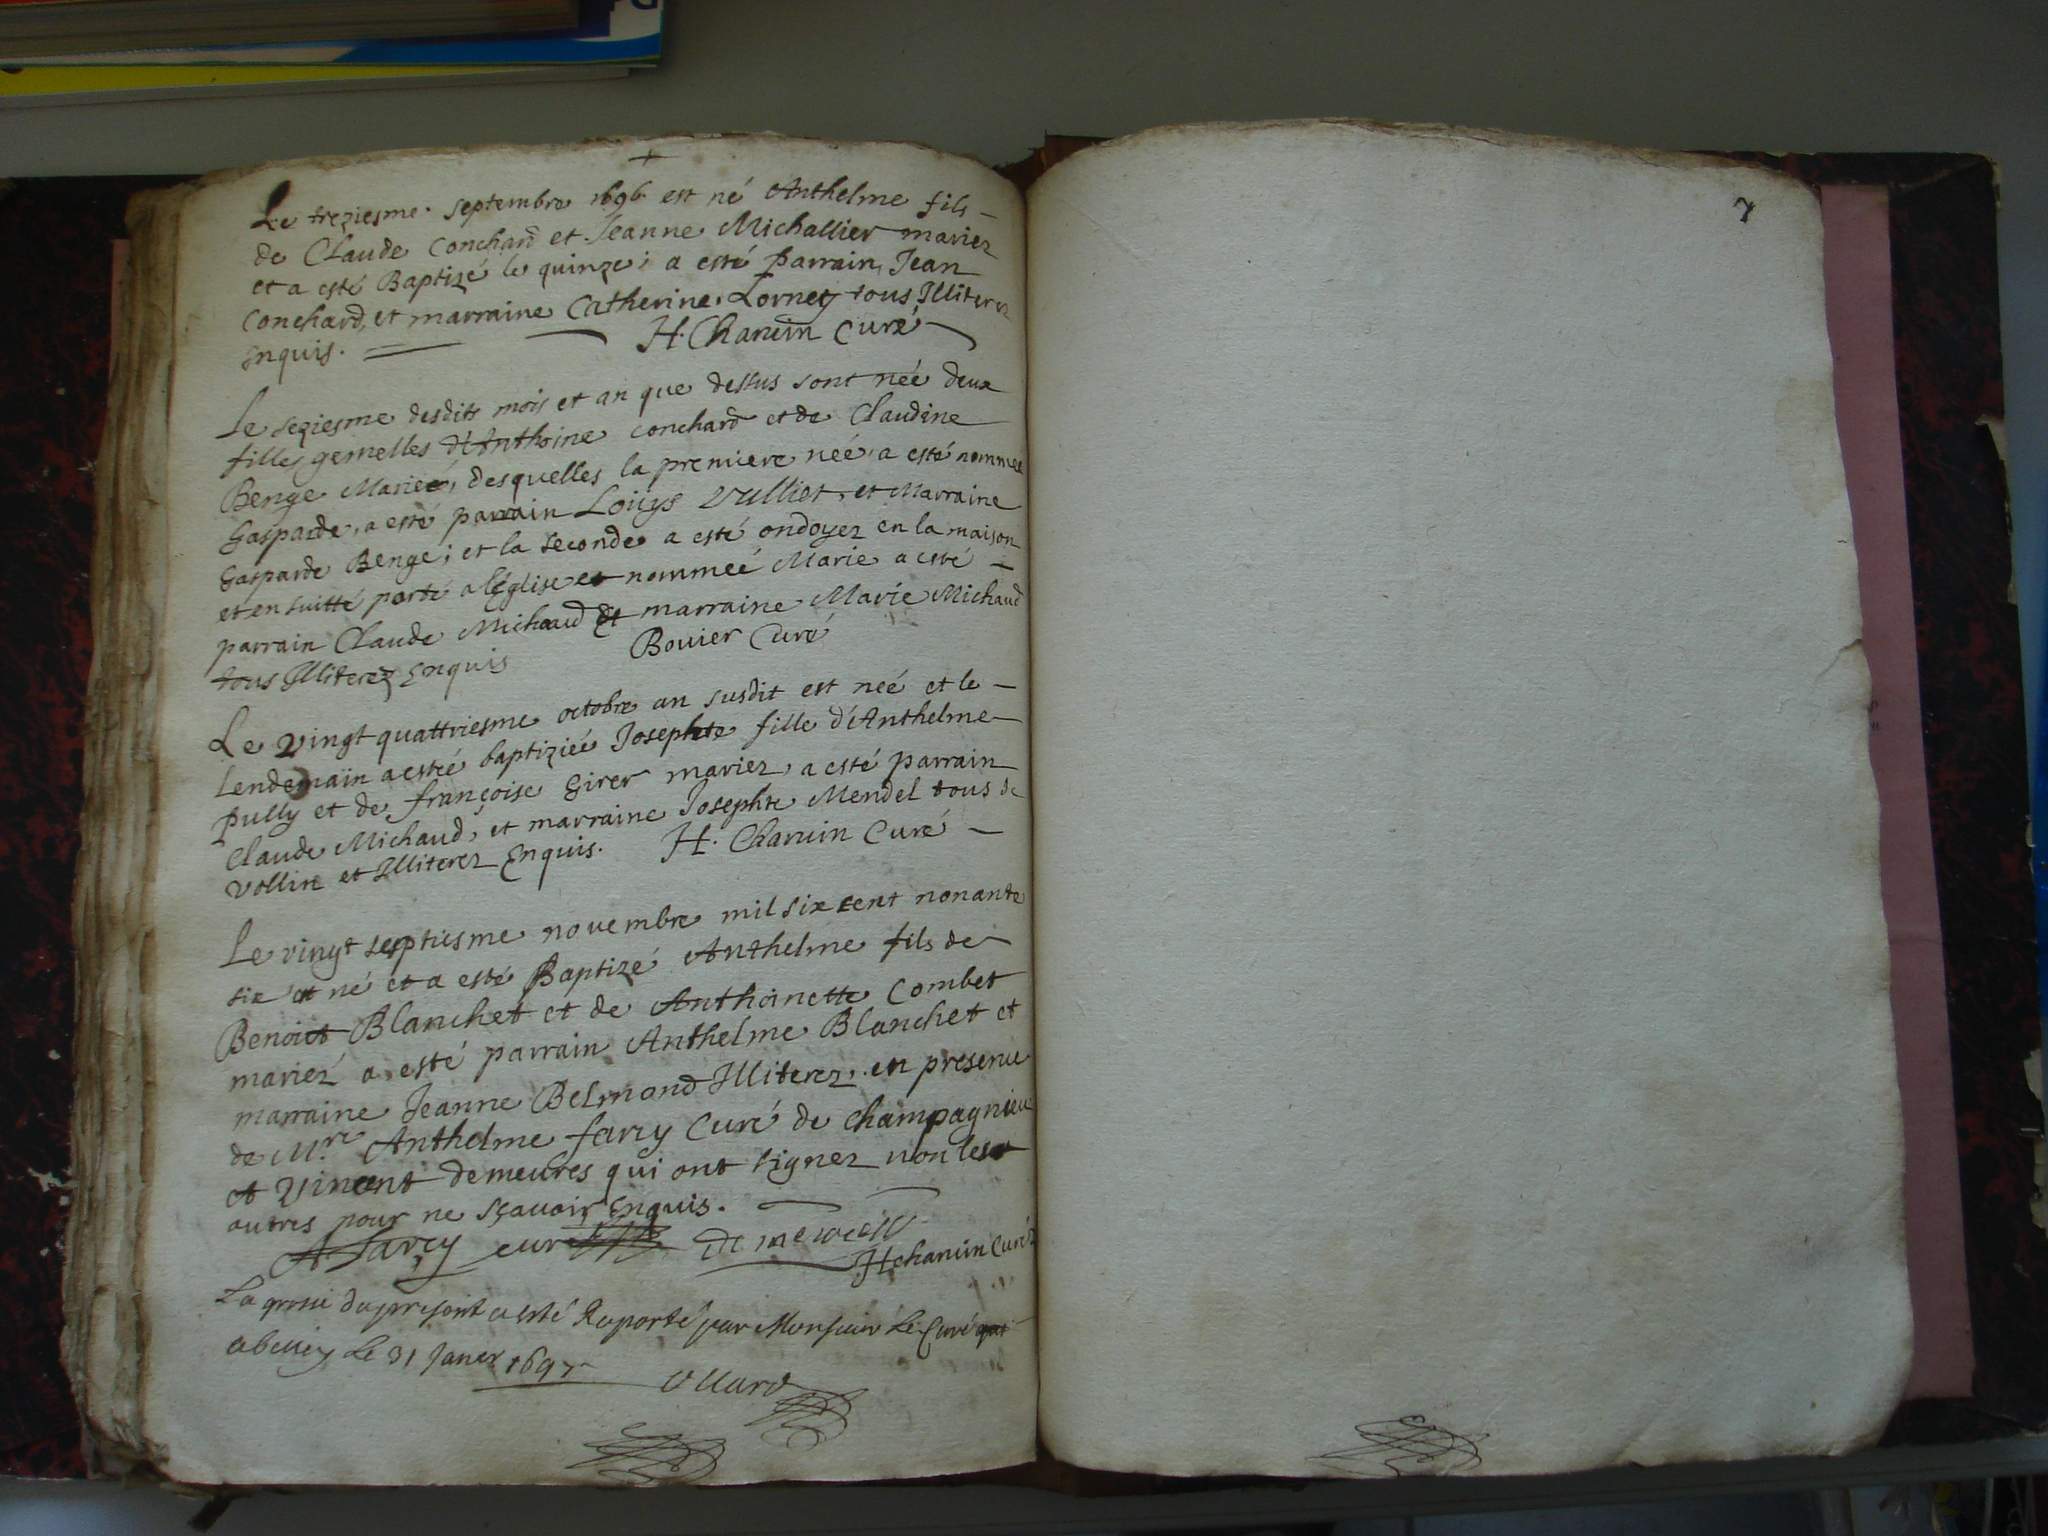 +
Le treziesme septembre 1696 est né Anthelme fils
de Claude Conchard et Jeanne Michallier mariez
et a esté Baptizé le quinze; a esté parrain Jean
Conchard, et marraine Catherine Lorney tous Illiterez
Enquis. H. Charuin Curé
Le seziesme desdits mois et an que dessus sont née deux
filles gemelles d'Anthoine Conchard et de Claudine
Benge Mariée, desquelles la premiere née, a esté nommée
Gasparde, a esté parrain Louys Vulliet, et Marraine
Gasparde Benge; et la seconde a esté ondoyez en la maison
et en suitté porté a lÉglise et nommeé Marie a esté
parrain Claude Michaud Et marraine Marie Michaud
tous Illiterez Enquis Bouier Curé
Le vingt quattriesme octobre an susdit est neé et le
lendemain a esteé baptizieé Josephte fille d'Anthelme
pully et de françoise Girer mariez, a esté parrain
Claude Michaud, et marraine Josephte Mendel tous de
Vollin et Illiterez Enquis. H. Charuin Curé
Le vingt septiesme novembre mil six cent nonante
six est né et a esté Baptizé Anthelme fils de
Benoict Blanchet et de Anthoinette Combet
mariéz a esté parrain Anthelme Blanchet et
marraine Jeanne Belmond Illiterez, en presence
de Mre. Anthelme farcy Curé de Champagnieu
et Vincent demeures qui ont signez non les
autres pour ne sçauoir Enquis.
A Farcy curé
H charuin Curé
La grosse du present a esté Raporté par Monsieur Le Curé
a belley Le 31 Janer 1697
7